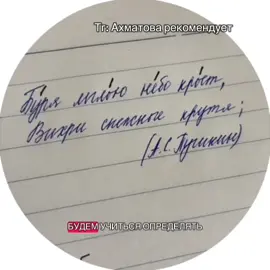 Тг: Ахматова рекомендует
Бу́ря мгло́ю не́бо кро́ет,
Вихри снежные крутя;
(А.С. Пушкин)
БУДЕМ УЧИТЬСЯ ОПРЕДЕЛЯТЬ